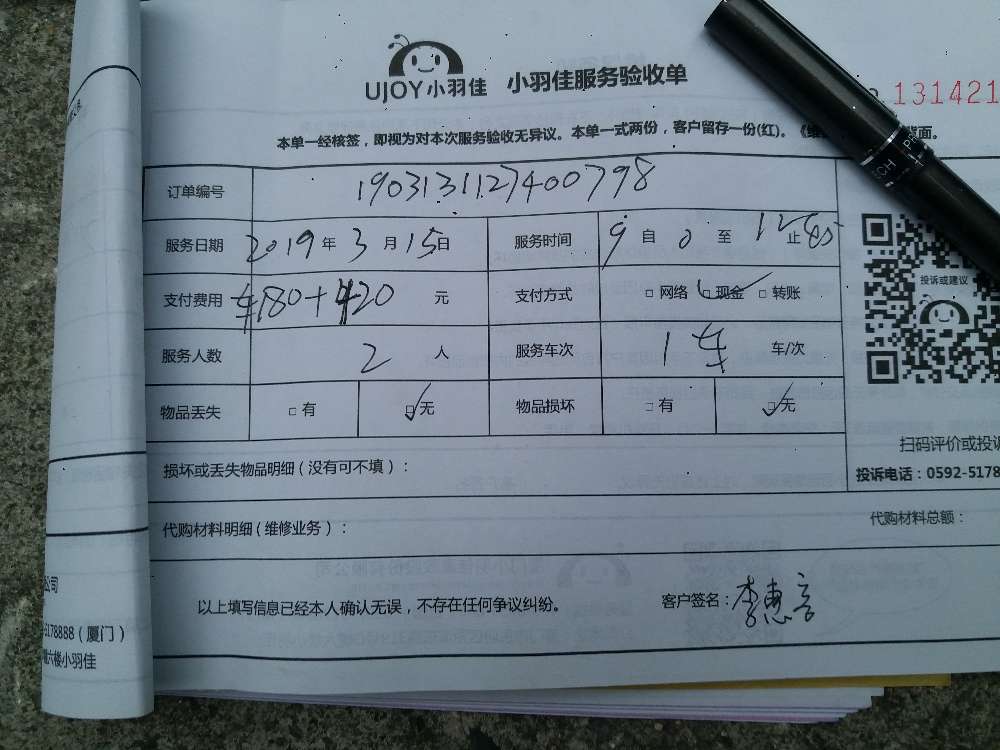 UJOY小羽佳 小羽佳服务验收单
131421
本单一经核签，即视为对本次服务验收无异议。本单一式两份，客户留存一份(红)。《维 背面。
订单编号 1903131127400798
服务日期 2019年3月15日 服务时间 9自0至12止45
支付费用 180+420 元 支付方式 □ 网络 □ 现金 □ 转账
投诉或建议
服务人数 2 人 服务车次 1车 车/次
物品丢失 □ 有 □ 无 物品损坏 □ 有 □ 无
扫码评价或投诉
损坏或丢失物品明细（没有可不填）：
投诉电话：0592-5178
代购材料明细（维修业务）： 代购材料总额：
以上填写信息已经本人确认无误，不存在任何争议纠纷。 客户签名：李惠
公司
5178888（厦门）
六楼小羽佳